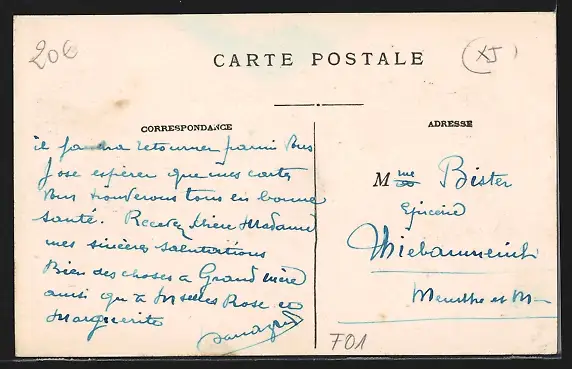 206
(XJ)
CARTE POSTALE
CORRESPONDANCE
ADRESSE
il faudra retourner parmi Vous
J'ose espérer que mes cartes
Vous trouverons tous en bonne
santé. Recevez chère Madame
mes sincères salutations
Bien des choses à Grand mère
ainsi qu'à Mselles Rose et
Marguerite
Mme Bister
Epicerie
Thiebauménil
Meurthe et M
F01